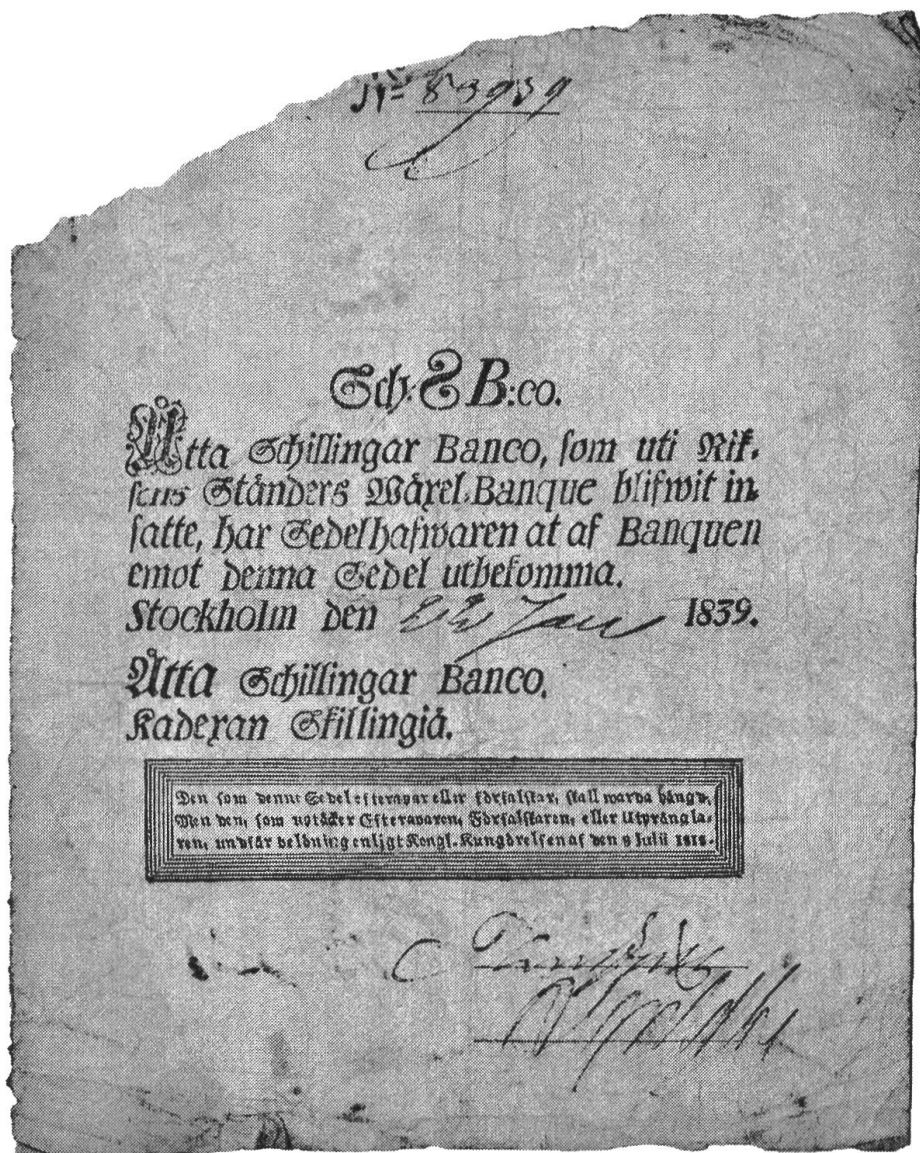 N:º 83939
Sch. 8 B:co.
Åtta Schillingar Banco, som uti Rik-
sens Ständers Wäxel-Banque blifwit in-
satte, har Sedelhafwaren at af Banquen
emot denna Sedel utbekomma.
Stockholm den Jan 1839.
Åtta Schillingar Banco.
Kadexan Skillingiä.
Den som denne Sedel efterapar eller förfalskar, skall warda hängd;
Men den, som uptäcker Efteraparen, Förfalskaren, eller Utprångla-
ren, undfår belöning enligt Kongl. Kungörelsen af den 9 Julii 1818.